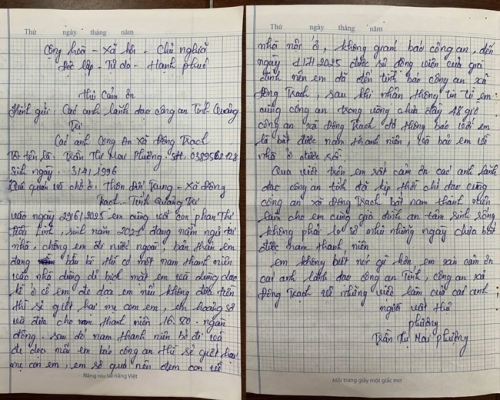 Thứ ngày tháng năm
Cộng hoà - Xã hội - Chủ nghĩa
Độc lập - Tự do - Hạnh phúc
Thư Cảm ơn
Kính gửi: Các anh lãnh đạo công an Tỉnh Quảng
Trị
Các anh Công An Xã Đông Trạch
Tôi tên là: Trần Thị Mai Phương
Sinh ngày: 1996
Quê quán và chỗ ở: Thôn Đức Trung - Xã Đông
Trạch - Tỉnh Quảng Trị
vào ngày 2025 em cùng với con
sinh năm đang nằm ngủ tại
nhà, chồng em đi nước ngoài, bản thân em
đang bầu bì thì có một nam thanh niên
vào nhà dùng bịt mặt em và dùng dao
kề ở cổ em đe doạ em nếu không đưa tiền
thì sẽ giết hai mẹ con em, em hoảng sợ
và đưa cho nam thanh niên ngàn
đồng, sau đó nam thanh niên bỏ đi và
đe doạ nếu em báo công an thì sẽ giết hai
mẹ con em, em sợ quá nên đem con về
Thứ ngày tháng năm
nhà nội ở, không dám báo công an, đến
ngày 2025 được sự động viên của gia
đình nên em đã đến trình báo công an xã
Đông Trạch, sau khi nhận thông tin từ em
cùng công an trong vòng chưa đầy 48 giờ
công an xã Đông Trạch đã thông báo với em
là bắt được nam thanh niên, và báo em về
nhà ở được rồi.
Qua viết trên em rất cảm ơn các anh lãnh
đạo công an tỉnh đã kịp thời chỉ đạo cùng
công an xã Đông Trạch bắt nam thanh niên
làm cho em cùng gia đình an tâm sinh sống
không phải lo sợ như những ngày chưa bắt
được nam thanh niên
em không biết nói gì hơn em xin cảm ơn
các anh lãnh đạo công an Tỉnh, công an xã
Đông Trạch vì những việc làm của các anh
người viết thư
Phương
Trần Thị Mai Phương